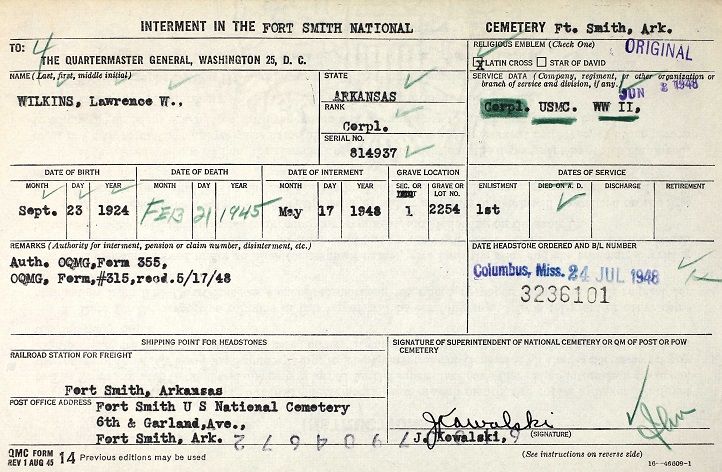 INTERMENT IN THE FORT SMITH NATIONAL CEMETERY Ft. Smith, Ark.
TO: 4
THE QUARTERMASTER GENERAL, WASHINGTON 25, D. C.
RELIGIOUS EMBLEM (Check One)
X LATIN CROSS STAR OF DAVID
ORIGINAL
NAME (Last, first, middle initial)
WILKINS, Lawrence W.,
STATE
ARKANSAS
RANK
Corpl.
SERIAL NO.
814937
SERVICE DATA (Company, regiment, or other organization or branch of service and division, if any)
JUN 1948
Corpl. USMC. WW II,
DATE OF BIRTH DATE OF DEATH DATE OF INTERMENT GRAVE LOCATION DATES OF SERVICE
MONTH DAY YEAR MONTH DAY YEAR MONTH DAY YEAR SEC. OR GRAVE OR LOT NO. ENLISTMENT DIED ON A. D. DISCHARGE RETIREMENT
Sept. 23 1924 FEB 21 1945 May 17 1948 1 2254 1st
REMARKS (Authority for interment, pension or claim number, disinterment, etc.)
Auth. OQMG,Form 355,
OQMG, Form,#315,recd.5/17/48
DATE HEADSTONE ORDERED AND B/L NUMBER
Columbus, Miss. 24 JUL 1948
3236101
SHIPPING POINT FOR HEADSTONES
RAILROAD STATION FOR FREIGHT
Fort Smith, Arkansas
POST OFFICE ADDRESS Fort Smith U S National Cemetery
6th & Garland,Ave.,
Fort Smith, Ark.
SIGNATURE OF SUPERINTENDENT OF NATIONAL CEMETERY OR QM OF POST OR POW CEMETERY
JKowalski
J. Kowalski, (SIGNATURE)
QMC FORM
REV 1 AUG 45 14 Previous editions may be used
(See instructions on reverse side)
16—46809-1